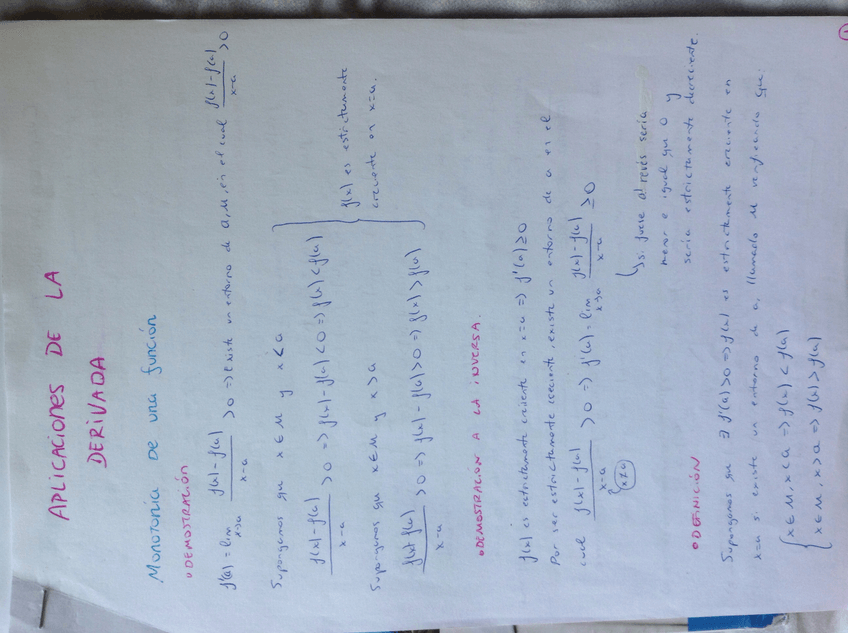 APLICACIONES DE LA
DERIVADA
Monotonía de una función
• DEMOSTRACIÓN
f'(a) = lim x→a f(x)-f(a)/x-a > 0 ⇒ Existe un entorno de a, M, en el cual f(x)-f(a)/x-a > 0
Supongamos que x ∈ M y x < a
f(x)-f(a)/x-a > 0 ⇒ f(x)-f(a) < 0 ⇒ f(x) < f(a)
Supongamos que x ∈ M y x > a
f(x)-f(a)/x-a > 0 ⇒ f(x)-f(a) > 0 ⇒ f(x) > f(a)
f(x) es estrictamente
creciente en x=a.
• DEMOSTRACIÓN A LA INVERSA.
f(x) es estrictamente creciente en x=a ⇒ f'(a) ≥ 0
Por ser estrictamente creciente, existe un entorno de a en el
cual f(x)-f(a)/x-a > 0 ⇒ f'(a) = lim x→a f(x)-f(a)/x-a ≥ 0
x≠a
si fuese al revés sería
menor e igual que 0 y
sería estrictamente decreciente.
• DEFINICIÓN
Supongamos que ∃ f'(a) > 0 ⇒ f(x) es estrictamente creciente en
x=a si existe un entorno de a, llamado M verificando que:
x ∈ M, x < a ⇒ f(x) < f(a)
x ∈ M, x > a ⇒ f(x) > f(a)
1